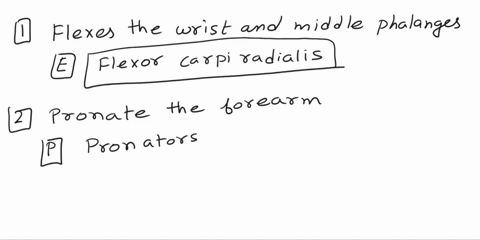 1 Flexes the wrist and middle phalanges
E Flexor carpi radialis
2 Pronate the forearm
P Pronators